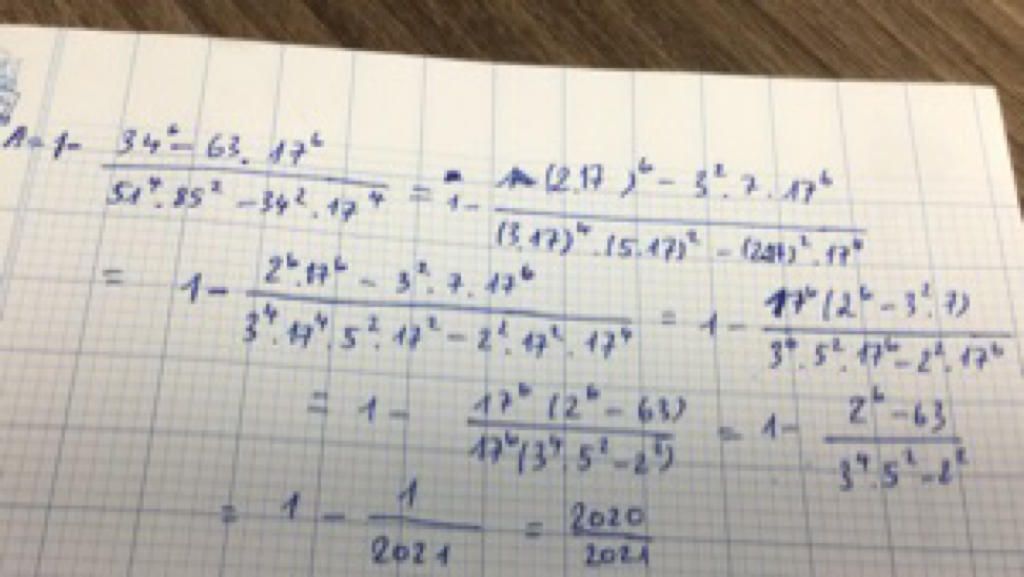 A = 1 - \frac{34^6 - 63 . 17^6}{51^4 . 85^2 - 34^2 . 17^4} = 1 - \frac{(2.17)^6 - 3^2 . 7 . 17^6}{(3.17)^4 . (5.17)^2 - (2.17)^2 . 17^4}
= 1 - \frac{2^6 . 17^6 - 3^2 . 7 . 17^6}{3^4 . 17^4 . 5^2 . 17^2 - 2^2 . 17^2 . 17^4} = 1 - \frac{17^6 (2^6 - 3^2 . 7)}{3^4 . 5^2 . 17^6 - 2^2 . 17^6}
= 1 - \frac{17^6 (2^6 - 63)}{17^6 (3^4 . 5^2 - 2^2)} = 1 - \frac{2^6 - 63}{3^4 . 5^2 - 2^2}
= 1 - \frac{1}{2021} = \frac{2020}{2021}